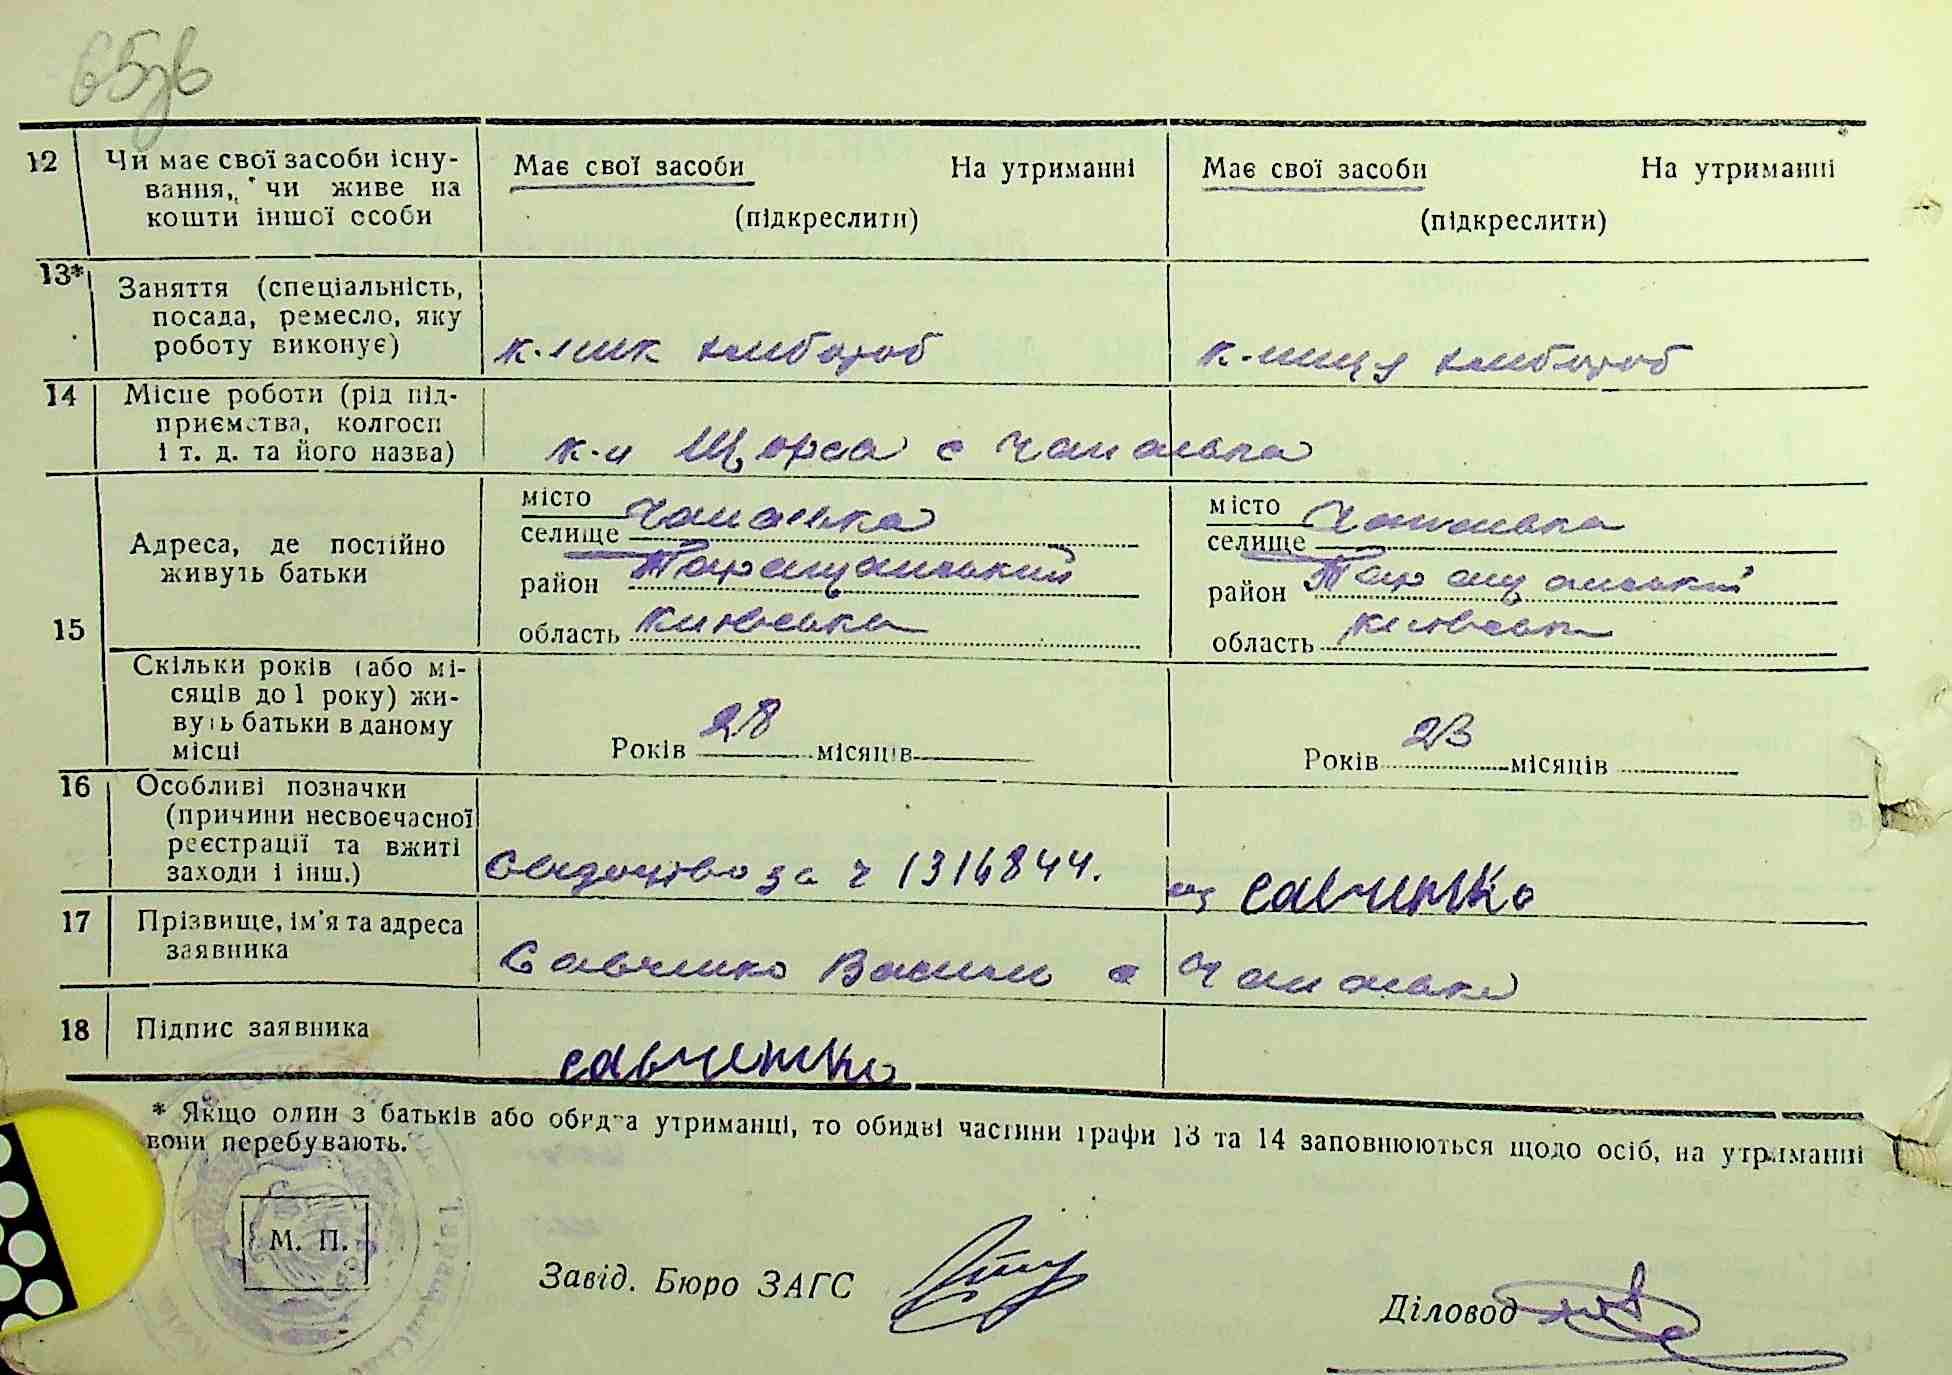 65зв
12 Чи має свої засоби існу-
вання, чи живе на
кошти іншої особи
Має свої засоби На утриманні
(підкреслити)
Має свої засоби На утриманні
(підкреслити)
13* Заняття (спеціальність,
посада, ремесло, яку
роботу виконує)
к-ник хлібороб
к-ниця хлібороб
14 Місце роботи (рід під-
приємства, колгосп
і т. д. та його назва)
к-п Щорса с Чапаєвка
15 Адреса, де постійно
живуть батьки
місто
селище Чапаєвка
район Таращанський
область Київська
місто
селище Чапаєвка
район Таращанський
область Київська
Скільки років (або мі-
сяців до 1 року) жи-
вуть батьки в даному
місці
Років 28 місяців
Років 23 місяців
16 Особливі позначки
(причини несвоєчасної
реєстрації та вжиті
заходи і інш.)
Свідоцтво за ч 1316844. Савченко
17 Прізвище, ім'я та адреса
заявника
Савченко Василь с Чапаєвка
18 Підпис заявника
Савченко
* Якщо один з батьків або обидва утриманці, то обидві частини графи 13 та 14 заповнюються щодо осіб, на утриманні
вони перебувають.
М. П.
Завід. Бюро ЗАГС
Діловод